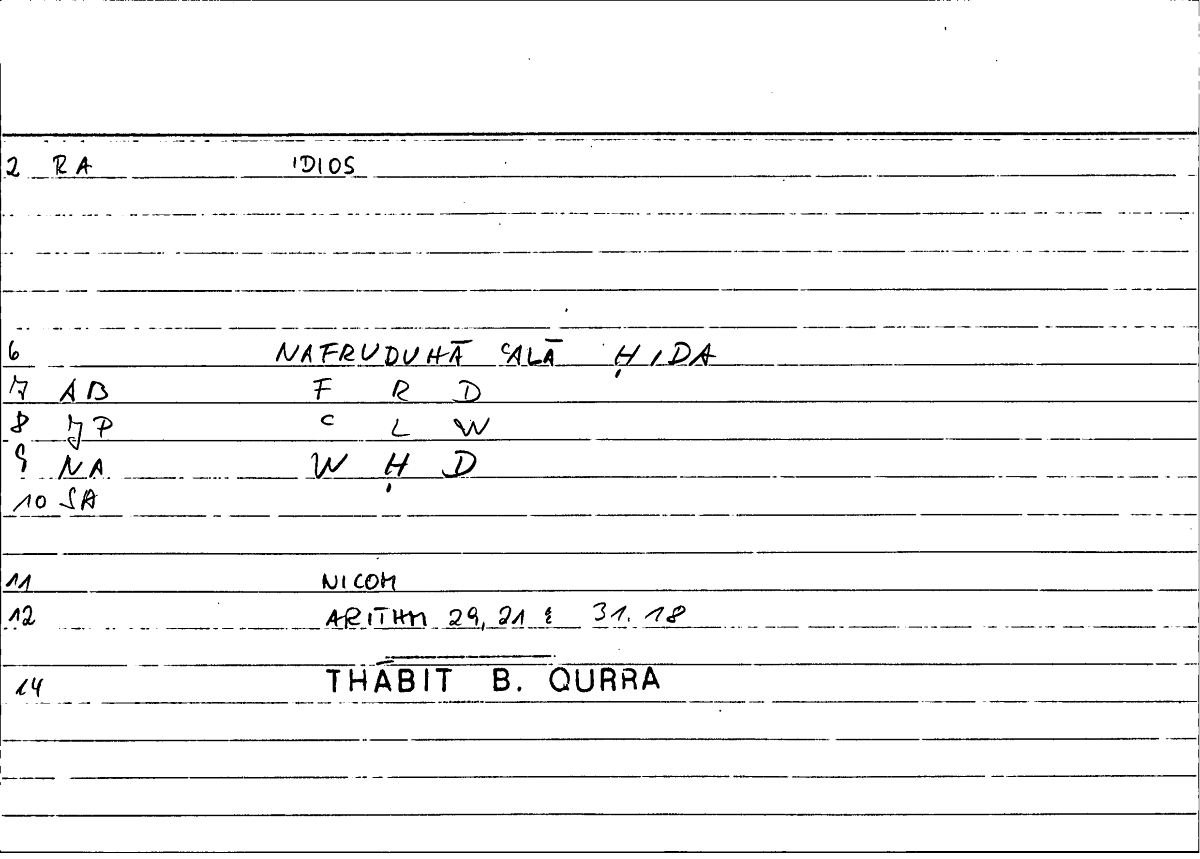 2 RA IDIOS
6 NAFRUDUHĀ ʿALĀ ḤIDA
7 AB F R D
8 JP ʿ L W
9 NA W Ḥ D
10 SA
11 NICOM
12 ARITHM 29,21 : 31.18
14 THĀBIT B. QURRA